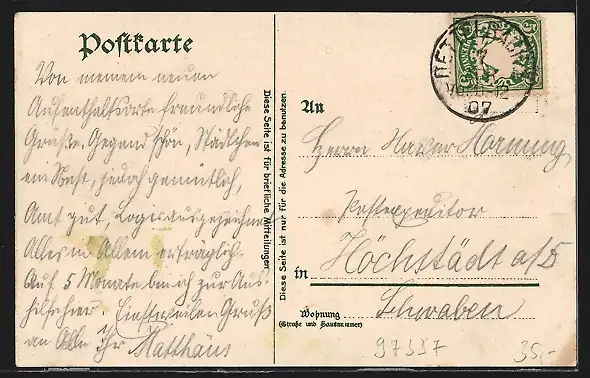 Postkarte
Von meinem neuen
Aufenthaltsorte freundliche
Grüße. Gegend schön, Städtchen
ein Nest, jedoch gemütlich,
Amt gut, Logis ausgezeichnet
Alles in Allem erträglich.
Auf 5 Monate bin ich zur Aus-
hilfe hier. Einstweilen Gruß
an Alle Ihr Matthäus
Diese Seite ist für briefliche Mitteilungen
Diese Seite ist nur für die Adresse zu benutzen.
5 5
12
07
An
Herrn Hornung
Postexpeditor
in Höchstädt a/D
Schwaben
Wohnung
(Straße und Hausnummer)
97337 35,-